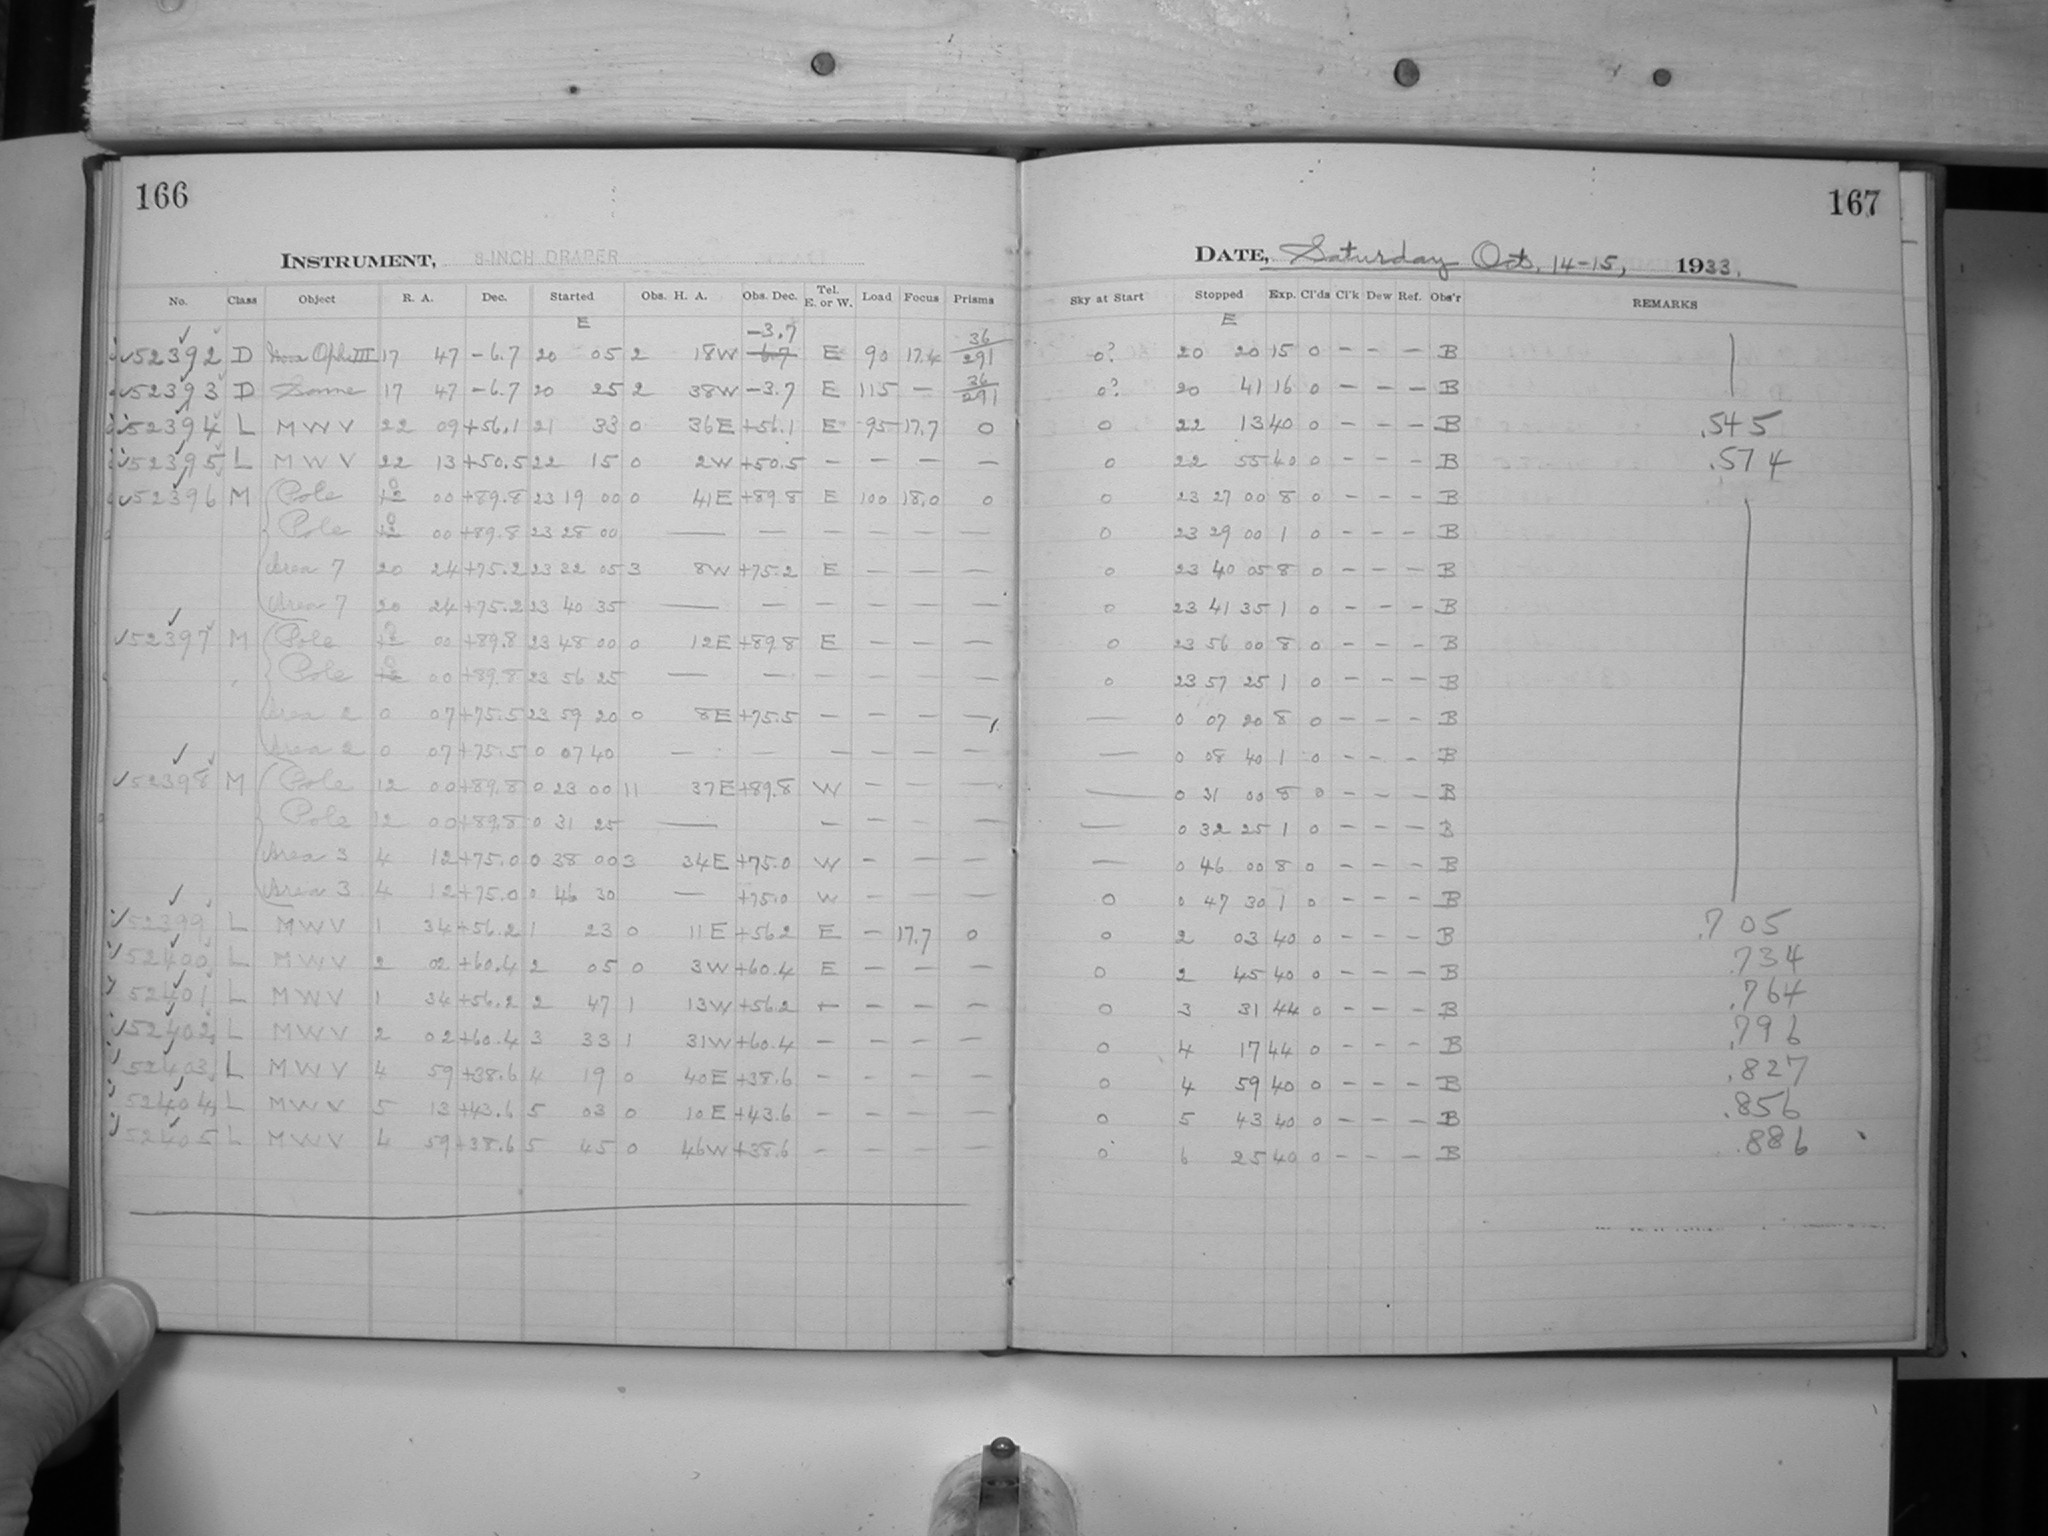 166
INSTRUMENT, 8 INCH DRAPER
No. Class Object R. A. Dec. Started Obs. H. A. Obs. Dec. Tel. E. or W. Load Focus Prisms
E -3.7 36
52392 D Nova Oph III 17 47 -6.7 20 05 2 18W 6.7 E 90 17.4 291
52393 D Same 17 47 -6.7 20 25 2 38W -3.7 E 115 — 36/291
52394 L MWV 22 09 +56.1 21 33 0 36E +56.1 E 95 17.7 0
52395 L MWV 22 13 +50.5 22 15 0 2W +50.5 — — — —
52396 M Pole 0 12 00 +89.8 23 19 00 0 41E +89.8 E 100 18.0 0
Pole 0 12 00 +89.8 23 28 00 — — — — — —
Area 7 20 24 +75.2 23 32 05 3 8W +75.2 E — — —
Area 7 20 24 +75.2 23 40 35 — — — — — —
52397 M Pole 0 12 00 +89.8 23 48 00 0 12E +89.8 E — — —
Pole 0 12 00 +89.8 23 56 25 — — — — — —
Area 2 0 07 +75.5 23 59 20 0 8E +75.5 — — — —
Area 2 0 07 +75.5 0 07 40 — — — — — —
52398 M Pole 12 00 +89.8 0 23 00 11 37E +89.8 W — — —
Pole 12 00 +89.8 0 31 25 — — — — —
Area 3 4 12 +75.0 0 38 00 3 34E +75.0 W — — —
Area 3 4 12 +75.0 0 46 30 — +75.0 W — — —
52399 L MWV 1 34 +56.2 1 23 0 11E +56.2 E — 17.7 0
52400 L MWV 2 02 +60.4 2 05 0 3W +60.4 E — — —
52401 L MWV 1 34 +56.2 2 47 1 13W +56.2 — — — —
52402 L MWV 2 02 +60.4 3 33 1 31W +60.4 — — — —
52403 L MWV 4 59 +38.6 4 19 0 40E +38.6 — — — —
52404 L MWV 5 13 +43.6 5 03 0 10E +43.6 — — — —
52405 L MWV 4 59 +38.6 5 45 0 46W +38.6 — — — —
167
DATE, Saturday Oct. 14-15, 1933.
Sky at Start Stopped Exp. Cl'ds Cl'k Dew Ref. Obs'r REMARKS
E
0? 20 20 15 0 — — — B
0? 20 41 16 0 — — — B
0 22 13 40 0 — — — B .545
0 22 55 40 0 — — — B .574
0 23 27 00 8 0 — — — B
0 23 29 00 1 0 — — — B
0 23 40 05 8 0 — — — B
0 23 41 35 1 0 — — — B
0 23 56 00 8 0 — — — B
0 23 57 25 1 0 — — — B
— 0 07 20 8 0 — — — B
— 0 08 40 1 0 — — — B
— 0 31 00 8 0 — — — B
— 0 32 25 1 0 — — — B
— 0 46 00 8 0 — — — B
0 0 47 30 1 0 — — — B
0 2 03 40 0 — — — B .705
0 2 45 40 0 — — — B .734
0 3 31 44 0 — — — B .764
0 4 17 44 0 — — — B .796
0 4 59 40 0 — — — B .827
0 5 43 40 0 — — — B .856
0 6 25 40 0 — — — B .886